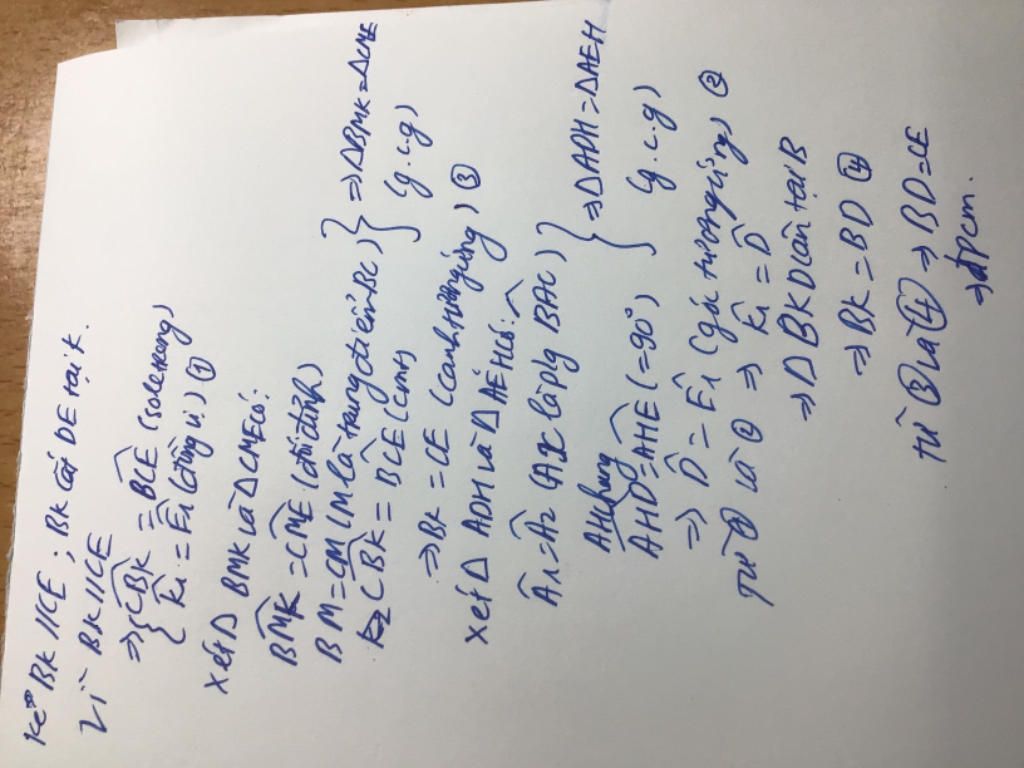 Kẻ BK // CE ; BK cắt DE tại K.
Vì BK // CE
=> { CBK = BCE (so le trong)
K1 = E1 (đồng vị) ①
Xét Δ BMK và Δ CME có:
BMK = CME (đối đỉnh)
BM = CM (M là trung điểm BC) } => ΔBMK = ΔCME
CBK = BCE (cmt) (g.c.g)
=> BK = CE (cạnh tương ứng) ③
Xét Δ ADH và Δ AEH có:
A1 = A2 (Ax là p/g BAC) } => ΔADH = ΔAEH
AH chung (g.c.g)
AHD = AHE (= 90°)
=> D = E1 (góc tương ứng) ②
Từ ① và ② => K1 = D
=> Δ BKD cân tại B
=> BK = BD ④
Từ ③ và ④ => BD = CE
=> đPcm.